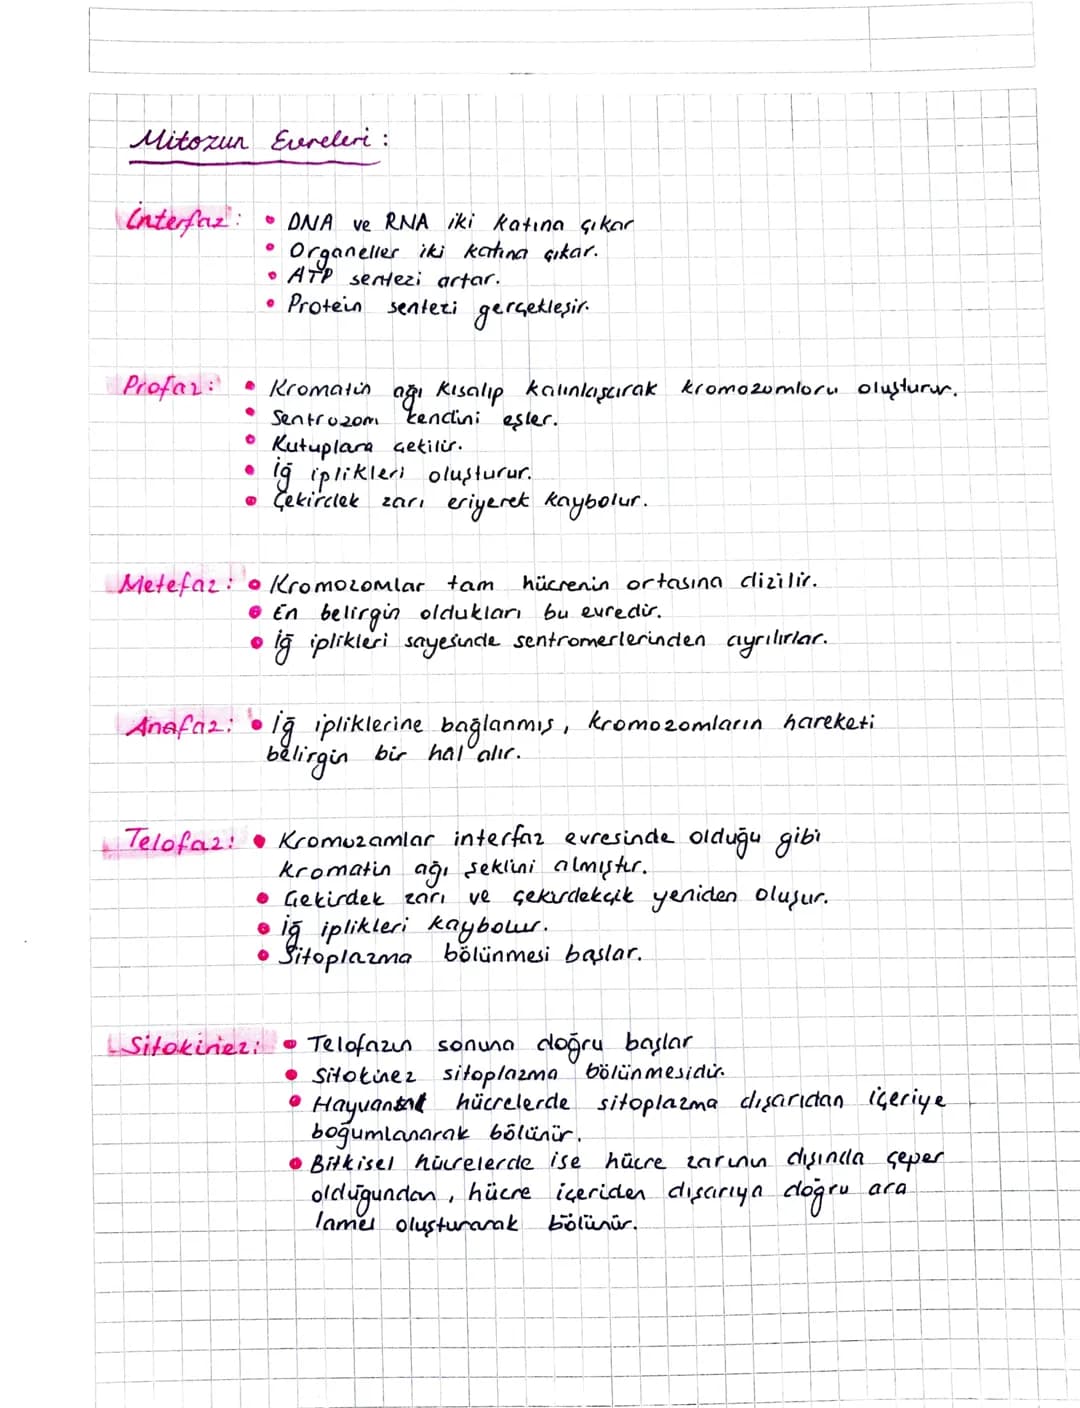 Mitozun Evreleri :
İnterfaz : • DNA ve RNA iki katına çıkar
• Organeller iki katına çıkar.
• ATP sentezi artar.
• Protein sentezi gerçekleşir.
Profaz : • Kromatin ağı kısalıp kalınlaşarak kromozomları oluşturur.
• Sentrozom kendini eşler.
• Kutuplara çekilir.
• İğ iplikleri oluşturur.
• Çekirdek zarı eriyerek kaybolur.
Metefaz : • Kromozomlar tam hücrenin ortasına dizilir.
• En belirgin oldukları bu evredir.
• İğ iplikleri sayesinde sentromerlerinden ayrılırlar.
Anafaz : • İğ ipliklerine bağlanmış, kromozomların hareketi
belirgin bir hal alır.
Telofaz : • Kromozamlar interfaz evresinde olduğu gibi
kromatin ağı şeklini almıştır.
• Çekirdek zarı ve çekirdekçik yeniden oluşur.
• İğ iplikleri kaybolur.
• Sitoplazma bölünmesi başlar.
Sitokinez : • Telofazın sonuna doğru başlar
• Sitokinez sitoplazma bölünmesidir.
• Hayvansal hücrelerde sitoplazma dışarıdan içeriye
boğumlanarak bölünür.
• Bitkisel hücrelerde ise hücre zarının dışında çeper
olduğundan, hücre içeriden dışarıya doğru ara
lamel oluşturarak bölünür.